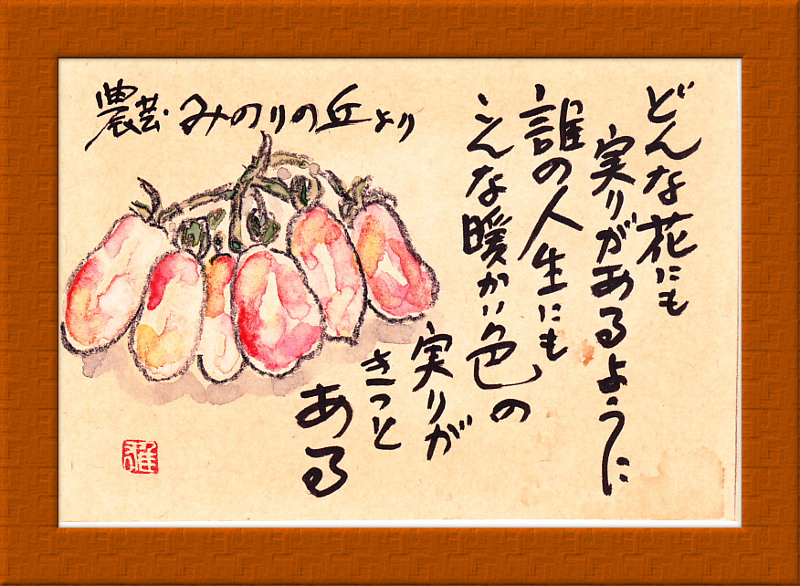 農芸みのりの丘より
どんな花にも
実りがあるように
誰の人生にも
こんな暖かい色の
実りが
きっと
ある
雅